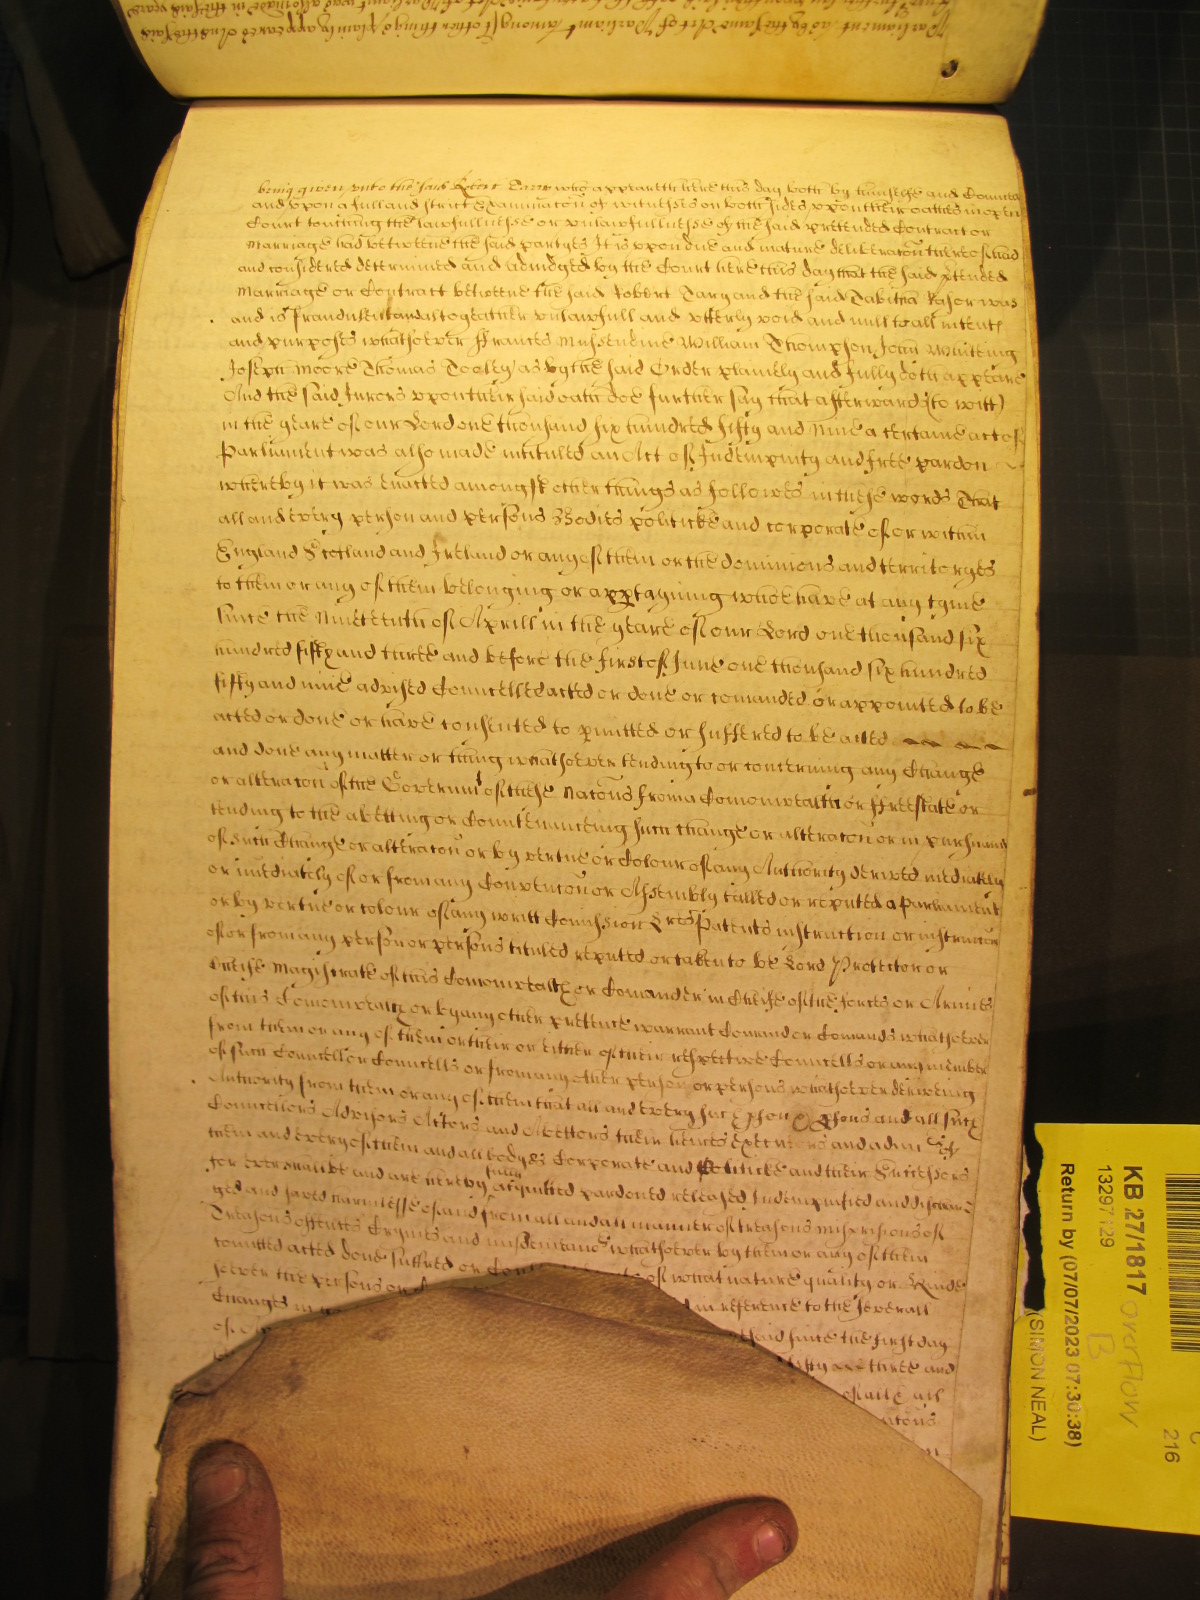 Parliament as by the same Act of Parliament amongst other things plainly appeares And the said
being given unto the said Robert Dary who appeareth here this day both by himselfe and Councell
and upon a full and strict Examinacon of witnesses on both sides upon their oathes in open
Court touching the lawfullnesse or unlawfullnesse of the said pretended Contract or
Marriage had betweene the said partyes It is upon due and mature deliberacon thereof had
and considered determined and adiudged by the Court here this day that the said ptended
Marriage or Contract betweene the said Robert Dary and the said Tabitha was
and is fraudulent and altogeather unlawfull and utterly void and null to all intents
and purposes whatsoever Frances Mussendine William Thompson John Whiteing
Joseph Moore Thomas Tooley as by the said Order plainely and fully doth appeare
And the said Jurors upon their said oath doe further say that afterwards (to witt)
in the yeare of our Lord one thousand six hundred fifty and Nine a certaine act of
Parliament was also made intituled an Act of Indempnity and free pardon
whereby it was enacted amongst other things as followes in these words That
all and every person and persons Bodies politicke and corporate of or within
England Scotland and Ireland or any of them or the dominions and territoryes
to them or any of them belonging or apptayning who have at any tyme
since the Nineteenth of Aprill in the yeare of our Lord one thousand six
hundred fifty and three and before the first of June one thousand six hundred
fifty and nine advised Councelled acted or done or comanded or appointed to be
acted or done or have consented to pmitted or suffered to be acted
and done any matter or thing whatsoever tending to or concerning any Change
or alteracon of the Governmt of these Nacons from a Comonwealth or Free state or
tending to the abetting or Countenanceing such change or alteracon or in pursuance
of such Change or alteracon or by vertue or Colour of any Authority derived mediately
or imediately of or from any Convencon or Assembly called or reputed a Parliament
or by vertue or colour of any writt Comission Lres Patents instruction or instructions
of or from any person or persons tituled reputed or taken to be Lord Protector or
Cheife Magistrate of this Comonwealth or Comander in Cheife of the forces or Armies
of this Comonwealth or by any other pretence warrant Comand or Comands whatsoever
from them or any of them or their or either of their respective Councells or any member
of such Councell or Councells or from any other person or persons whatsoever deriveing
Authority from them or any of them that all and every such pson & psons and all such
Councellors Advisors Actors and Abettors their heires executors and admi
them and every of them and all bodyes Corporate and Politicke and their Successors
for ever shall be and are hereby fully acquitted pardoned released Indempnified and dischar
ged and saved harmelesse of and from all and all manner of treasons misprisions of
Treasons offences Crymes and misdemeanors whatsoever by them or any of them
comitted acted done suffred or of what nature quality or Kinde
soever the persons or in reference to the severall
Changes in said since the first day
of fifty three and
KB 27/1817
13297129
Return by (07/07/2023 07:30:38)
(SIMON NEAL)
overflow
B
C
216